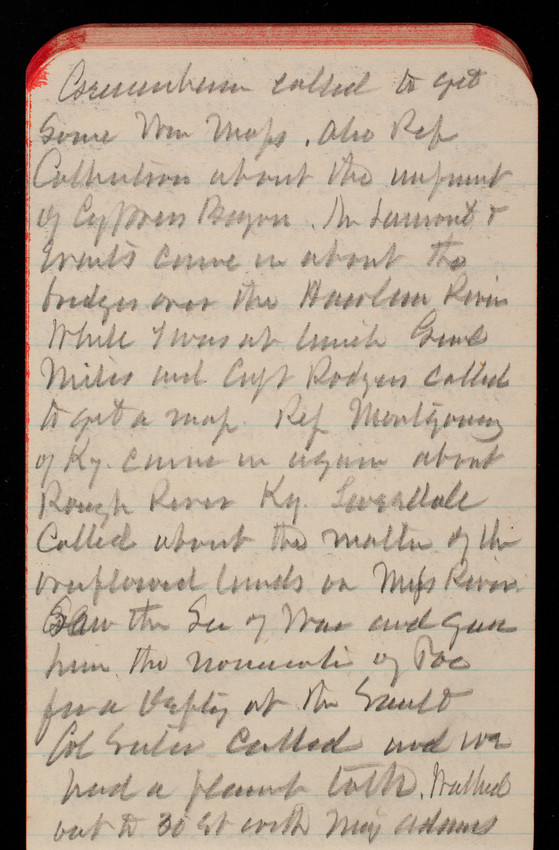 called to get
some Maps. Also Rep
Catchings about the
of Cypress Bayou. Mr Lamont &
came in about the
bridges over the Harlem River
While I was at lunch Genl
Miles and Capt Rodgers called
to get a map. Rep Montgomery
of Ky. came in again about
Rough River Ky. Leverdale
Called about the matter of the
overflowed lands on Miss River.
Saw the Sec of War and gave
him the of Poe
for a at the Sault
Col Suter called and we
had a pleasant talk. Walked
out to 30 st with Maj Adams